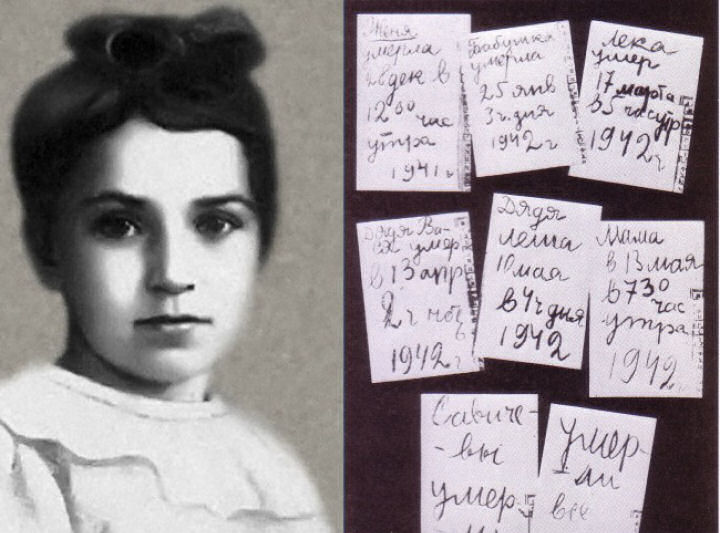 Женя
умерла
28 дек в
12 00 час
утра
1941 г
Бабушка
умерла
25 янв
3 ч. дня
1942 г
Лека
умер
17 марта
в 5 час утр
1942 г
Дядя Ва-
ся умер
в 13 апр
2 ч ночь
1942 г
Дядя
Леша
10 мая
в 4 ч дня
1942
Мама
в 13 мая
в 7 30
час
утра
1942 г
Савиче-
-вы
умер-
Умер-
ли
все